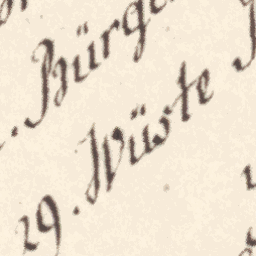 . Bürge
29. Wüste